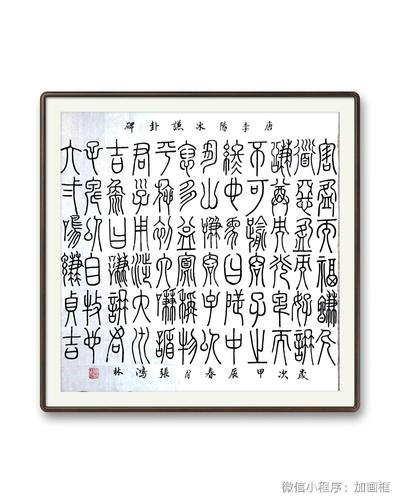 唐李陽冰謙卦碑
害盈而福謙人
道惡盈而好謙
謙尊而光卑而
不可踰君子之
終也象曰地中
有山謙君子以
裒多益寡稱物
平施初六謙謙
君子用涉大川
吉象曰謙謙君
子卑以自牧也
六二鳴謙貞吉
歲次甲辰春月張鴻林
微信小程序：加画框